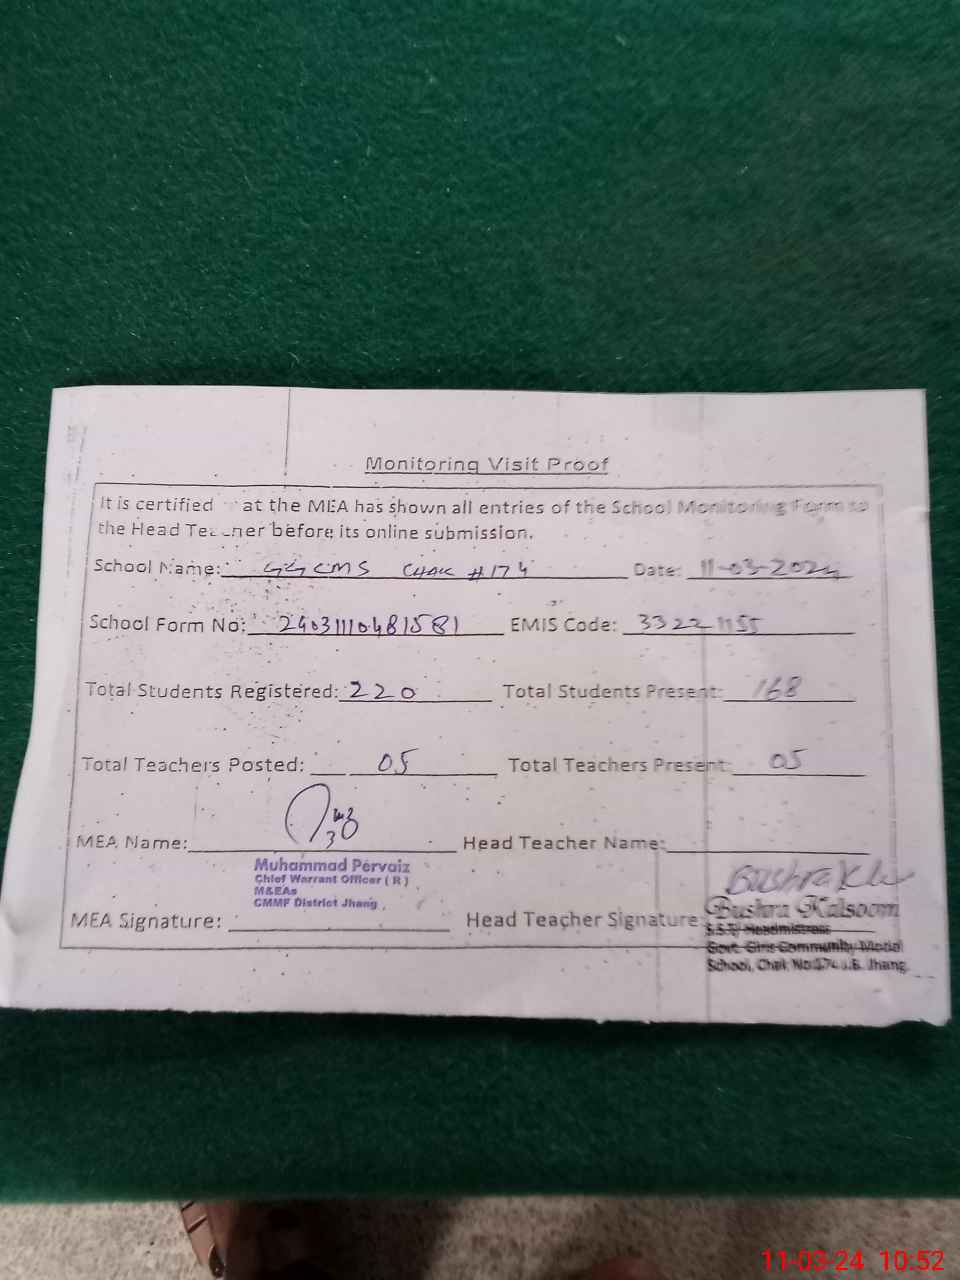 Monitoring Visit Proof
It is certified at the MEA has shown all entries of the School Monitoring Form to
the Head before its online submission.
School Name: GGCMS CHAK #174 Date: 11-03-2024
School Form No: 24031110481581 EMIS Code: 33221155
Total Students Registered: 220 Total Students Present: 168
Total Teachers Posted: 05 Total Teachers Present: 05
MEA Name: Head Teacher Name:
Muhammad Pervaiz
Chief Warrant Officer ( R )
M&EAs
CMMF District Jhang
MEA Signature: Head Teacher Signature
Bushra Kalsoom
S.S.T/ Headmistress
Govt. Girls Community Model
School, Chak No.174 J.B. Jhang
11-03-24 10:52